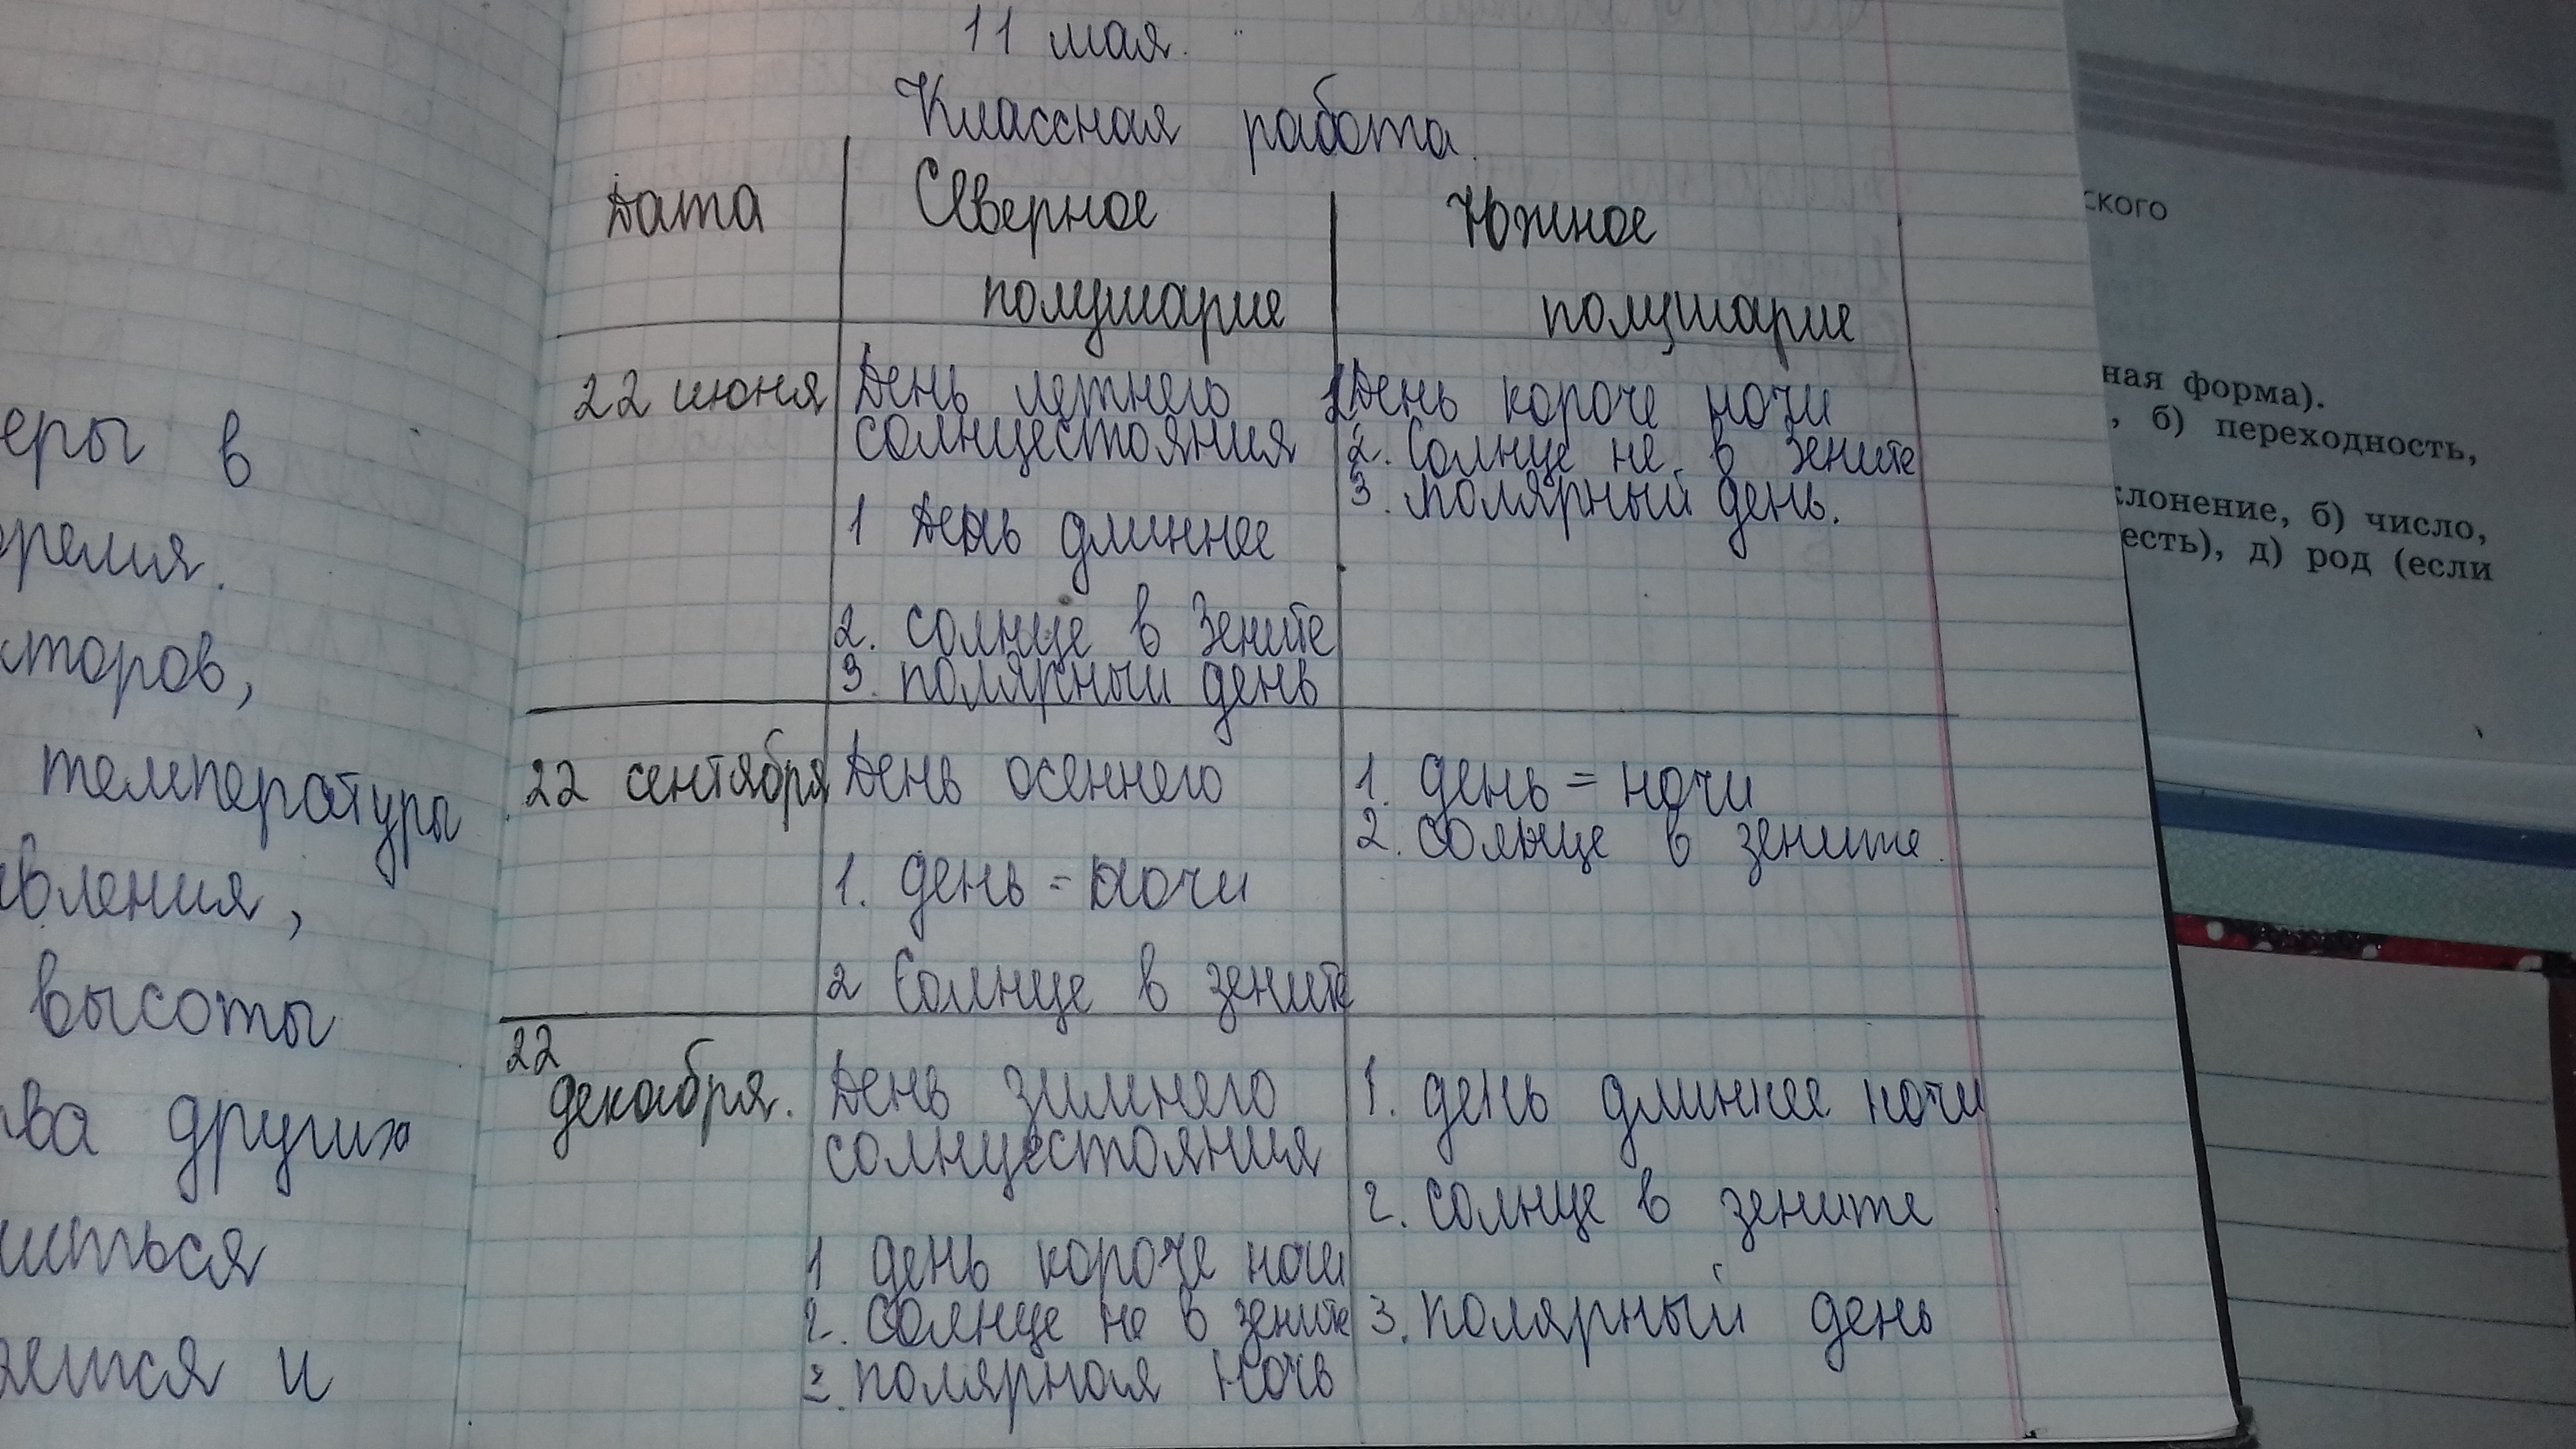 11 мая.
Классная работа.
Дата
Северное
полушарие
Южное
полушарие
22 июня
День летнего
солнцестояния
1 День длиннее
2. солнце в Зените
3. полярный день
1 День короче ночи
2. Солнце не в Зените
3. полярный день.
22 сентября
День осеннего
1. день = ночи
2 Солнце в зените
1. день = ночи
2. солнце в зените.
22
декабря.
День зимнего
солнцестояния
1 день короче ночи
2. солнце не в зените
3. полярная ночь
1. день длиннее ночи
2. солнце в зените
3. полярный день
еры в
температуры
высоты
других
и
ского
ная форма).
, б) переходность,
клонение, б) число,
есть), д) род (если